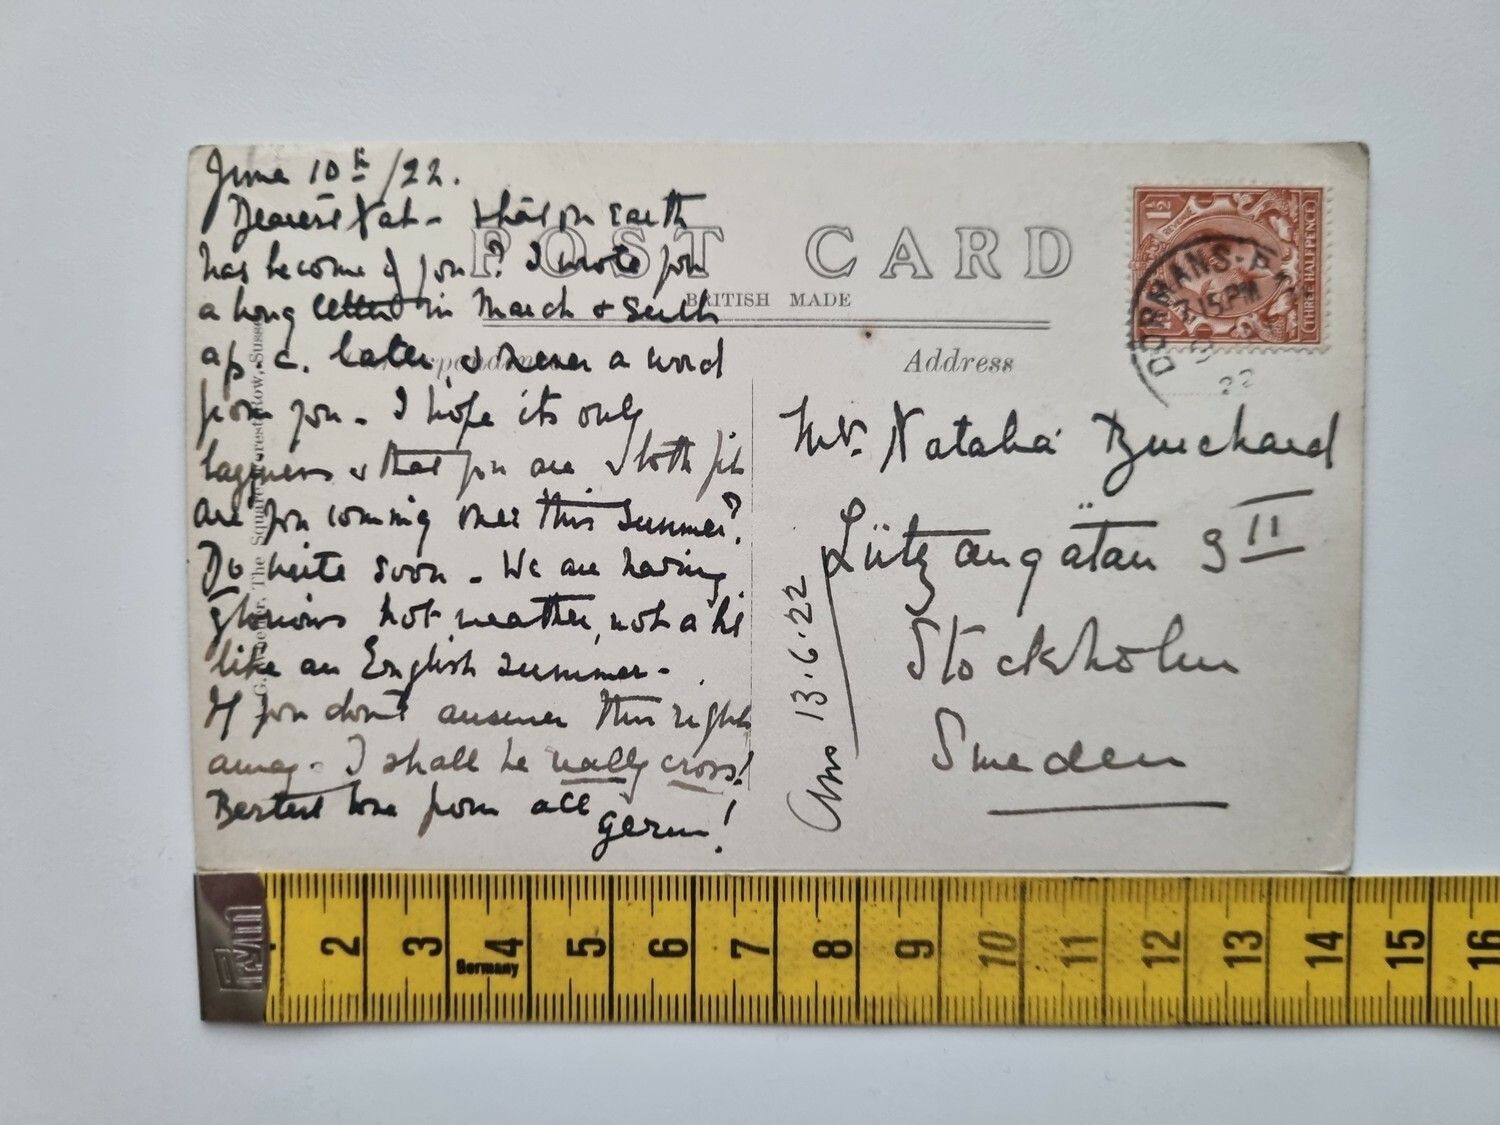 June 10th/22.
Dearest Nat - What on earth
has become of you? I wrote you
a long letter in March & sent
a p.c. later & never a word
from you - I hope its only
laziness & that you are both fit
are you coming over this summer?
Do write soon - We are having
glorious hot weather, not a bit
like an English summer -
If you don't answer this right
away - I shall be really cross!
Best love from all
Gerin!
POST CARD
BRITISH MADE
Address
The Square, Forest Row, Sussex
1½
THREE HALFPENCE
DORMANS
7.15 PM
22
Natalia Burchard
Lützangatan 9 II
Stockholm
Sweden
Ans 13.6.22
Germany
2 3 4 5 6 7 8 9 10 11 12 13 14 15 16